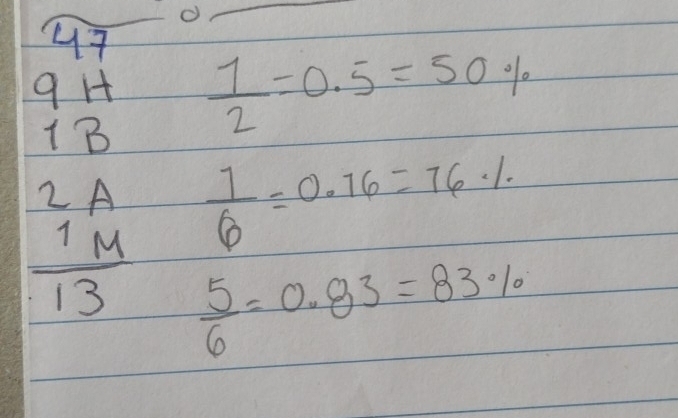 47
9 H 1/2 = 0.5 = 50%
1 B
2 A 1/6 = 0.16 = 16%
1 M
13 5/6 = 0.83 = 83%